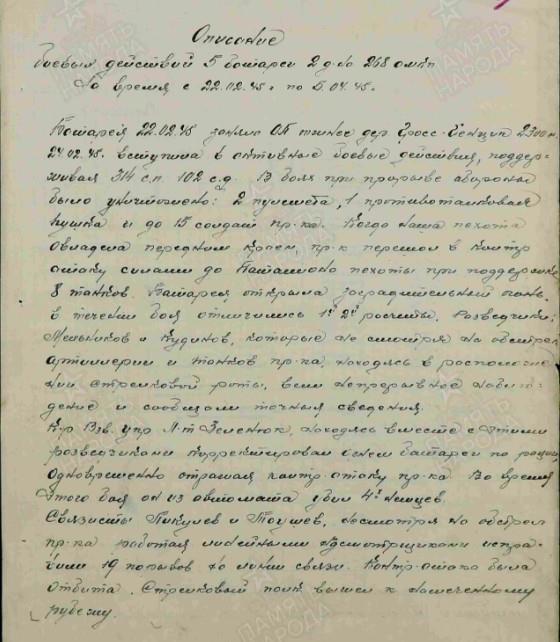 Описание
боевых действий 5 батареи 2 д-на 268 омкп
За время с 22.02.45 г по 5.04.45г.
Батарея 22.02.45 заняла ОП дер. Гросс- 2300 м.
24.02.45. вступила в активные боевые действия, поддер-
живая 314 с.п. 102 с.д. В боях при прорыве обороны
было уничтожено: 2 пулемета, 1 противотанковая
пушка и до 15 солдат пр-ка. Когда наша пехота
овладела передним краем, пр-к перешол в контр
атаку силами до баталиона пехоты при поддержке
8 танков. Батарея открыла заградительный огонь,
в течении боя отличились 1й 2й расчеты. Разведчики:
Мельников и Кудинов, которые не смотря на обстрел
артиллерии и танков пр-ка, находясь в расположе-
нии стрелковой роты, вели непрерывное наблю-
дение и сообщали точныя сведения.
К-р Взв. упр Л-т Зеленюк, находясь вместе с этими
розведчиками корректировал огнем батареи по рации,
одновременно отражая контр-атаку пр-ка. Во время
этого боя он из автомата убил 4х немцев.
Связисты Пикулев и Тоушев, несмотря на обстрел
пр-ка работая линейными надсмотрщиками испра-
вили 19 порывов на линии связи. Контр-атака была
отбита. Стрелковый полк вышел к намеченному
рубежу.
ПАМЯТЬ
НАРОДА